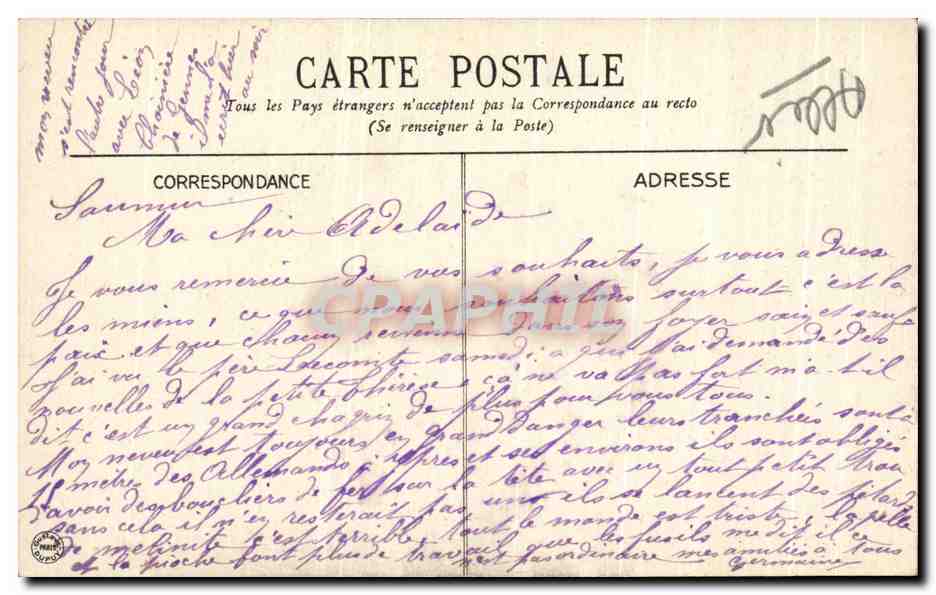 mon neveu
s'est rencontré
l'autre jour
avec Léon
de Gennes
il m'a
écrit hier
au soir
CARTE POSTALE
Tous les Pays étrangers n'acceptent pas la Correspondance au recto
(Se renseigner à la Poste)
CORRESPONDANCE
ADRESSE
Saumur
Ma chère Adelaide
Je vous remercie de vos souhaits, je vous adresse
les miens, ce que nous souhaitons surtout c'est la
paix et que chacun revienne dans son foyer sain et sauf
J'ai vu le père Lecomte samedi a qui j'ai demandé des
nouvelles de la petite Thérèse, ça ne va pas fort m'a-t-il
dit c'est un grand chagrin de plus pour vous tous.
Mon neveu est toujours en grand danger leurs tranchées sont à
15 mètres des Allemands à ypres et ses environs ils sont obligés
d'avoir des boucliers de fer sur la tête avec un tout petit trou
sans cela il n'en resterait pas un ils se lancent des pétards
de mélinite c'est terrible tout le monde est triste, la pelle
et la pioche font plus de travail que les fusils me dit il ce
n'est pas ordinaire mes amitiés à tous
Germaine
CPAPHIL
PARIS